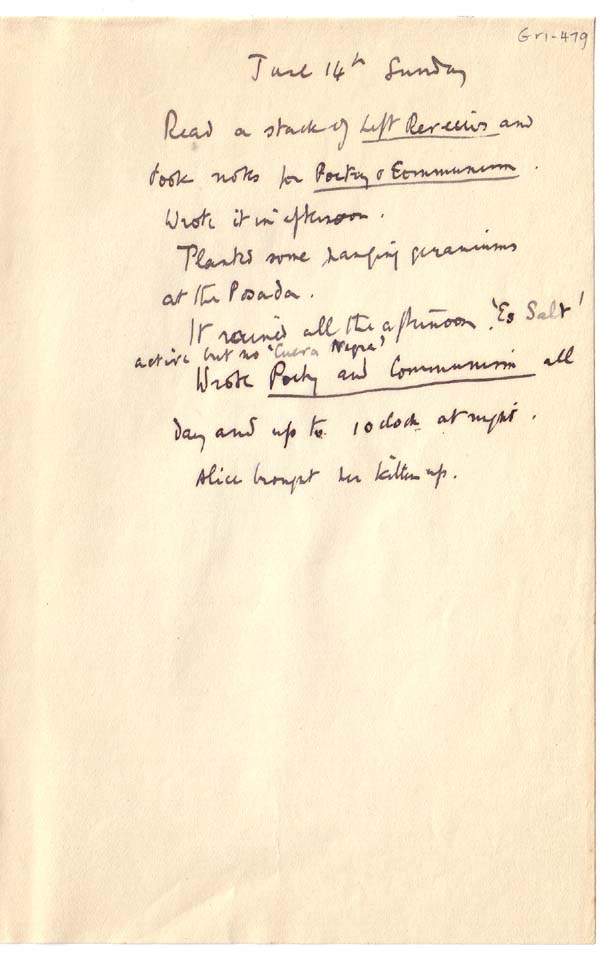 Gri-479
June 14th Sunday
Read a stack of Left Reviews and
took notes for Poetry & Communism.
Wrote it in afternoon.
Planted some hanging geraniums
at the Posada.
It rained all the afternoon. 'Es Salt'
active but no 'Cueva Negra'
Wrote Poetry and Communism all
day and up to 10 clock at night.
Alice brought her kitten up.